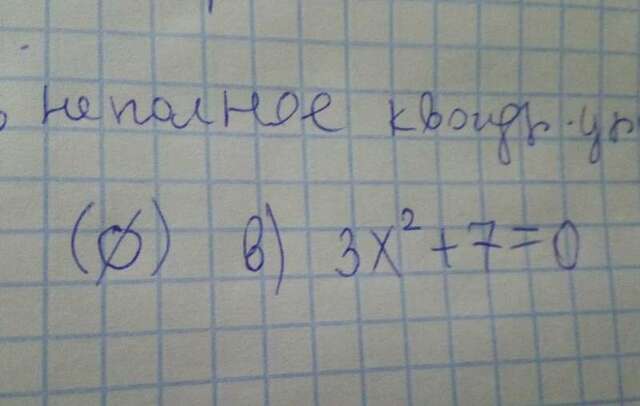 неполное квадр. ур
(∅) в) 3x² + 7 = 0